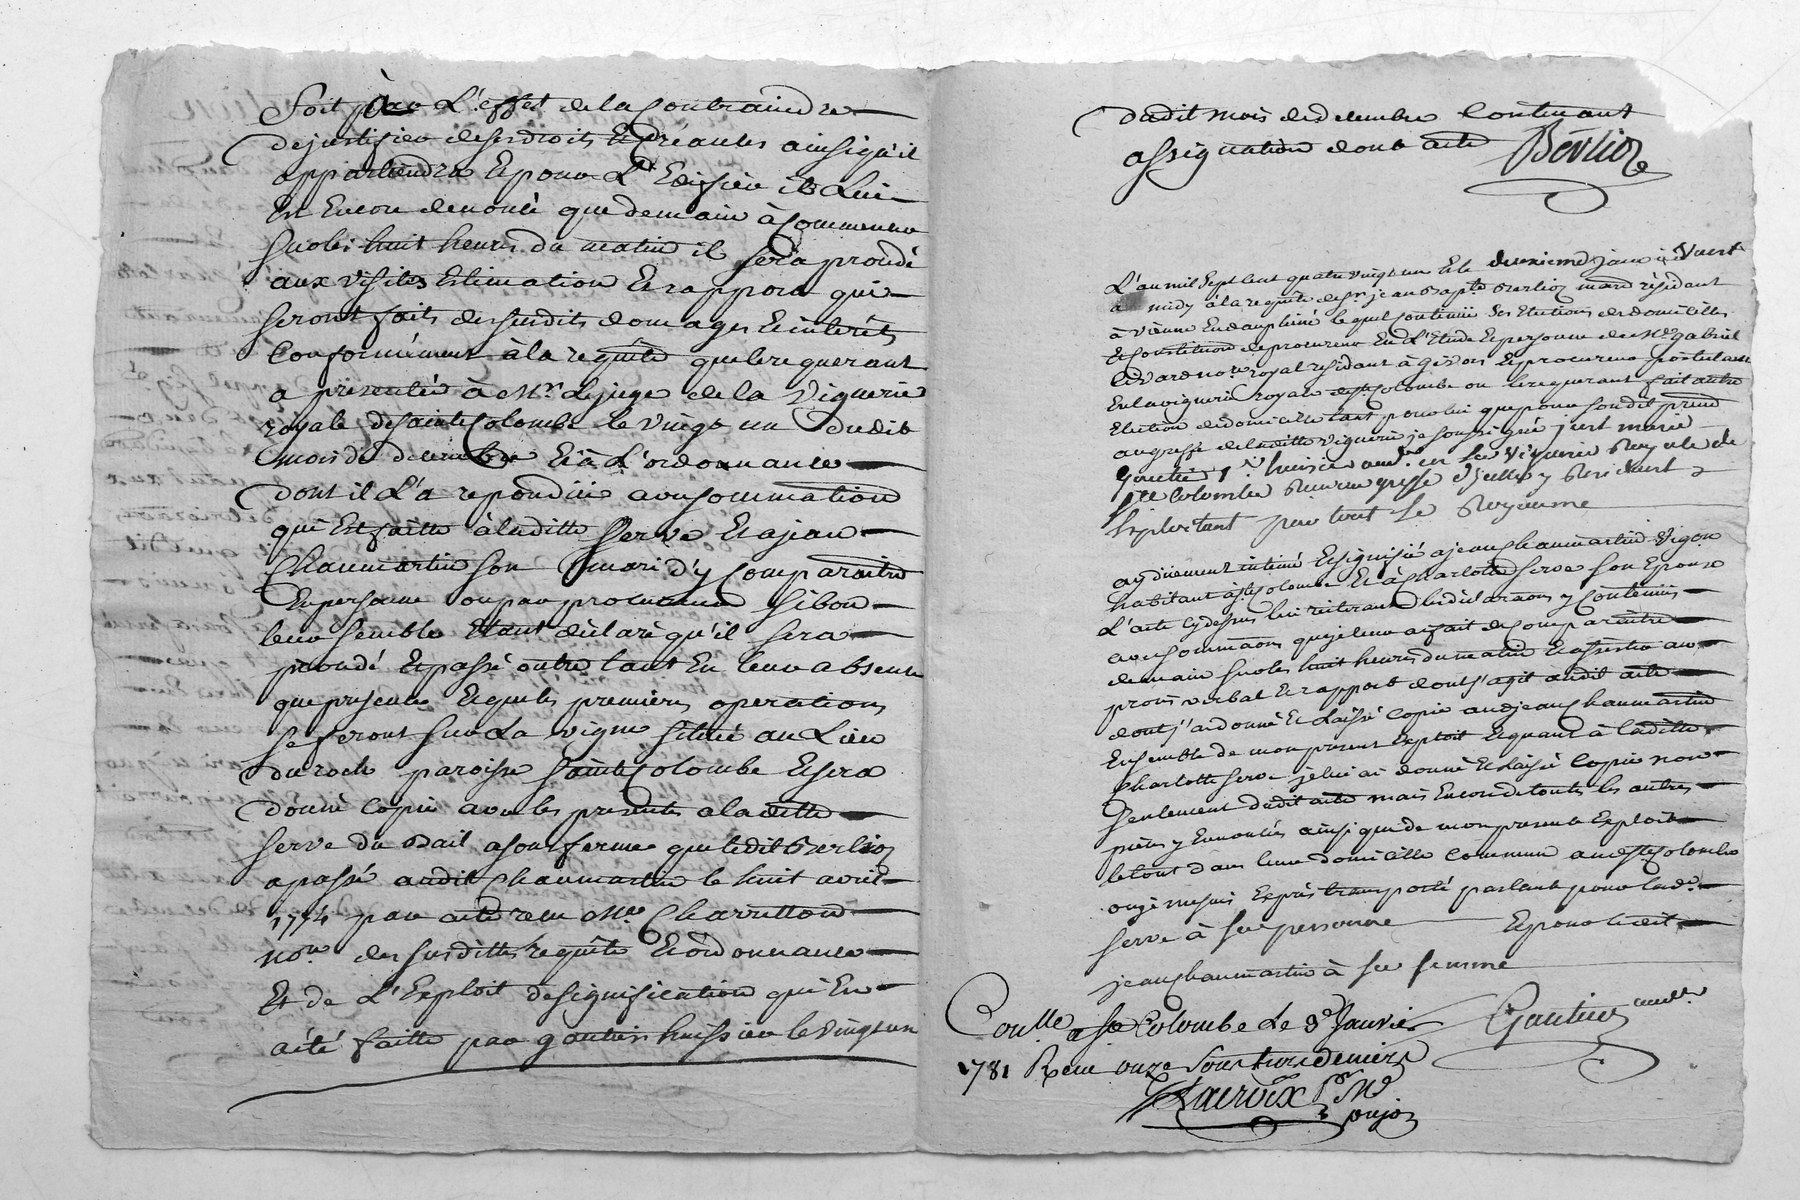 Soit par L'effet de la Contraindre
de justifier de ses droits et créances ainsi qu'il
appartiendra et pour L'Edifier il Lui
Est Encore denoncé que demain à Commencer
sur les huit heures du matin il sera procédé
aux visites Estimation et rapport qui
seront faits des susdits domages et interêts
Conformément à la requête que le requerant
a présentée à Mr. Le juge de la Viguerie
royale de sainte Colombe le vingt un dudit
mois de decembre et à L'ordonnance
dont il L'a repondüe avec sommation
qui Est faitte à laditte Serve et a jean
Chaumartin son mari d'y Comparoitre
En personne ou par procureur si bon
leur semble Etant déclaré qu'il sera
procedé et passé outre tant En leur absence
que presence et que les premieres operations
se feront sur La vigne située au Lieu
du roch paroisse sainte Colombe et sera
donné Copie avec les presentes a laditte
serve du Bail a sous ferme que ledit Berlioz
a passé audit Chaumartin le huit avril
1774 par acte reçu Me. Charretton
nore. des susdittes requête et ordonnance
Et de L'Exploit de signification qui En
a été faitte par gautier huissier le vingt un
dudit mois de decembre Contenant
assignation dont acte Berlioz
L'an mil sept cent quatre vingt un et le deuxieme janvier avant
à midy à la requête de sr jean Bapte. Berlioz résidant
à vienne En dauphiné lequel Continüe ses Elections de domicilles
et Constitution de procureur En L'Etude et personne de Me gabriel
nore. royal résidant à givors et procureur postulant
En la viguerie royale de ste Colombe ou le requerant fait autre
Election de domicille tant pour lui que pour sondit
au greffe de laditte viguerie je soussigné just marie
Gautier 1er. huissier audr. en La Viguerie Royale de
Ste Colombe Reçu au greffe d'jcelle y Residant
Exploitant par tout Le Royaume
ay düement intimé et signifié a jean Chaumartin Vigon
habitant à ste Colombe Et à Charlotte Serve son Epouse
L'acte Cy dessus lui reiterant les déclaraons y Contenües
avec sommaon que je leur ai fait de Comparoitre
demain sur les huit heures du matin et assister au
procès verbal et rapport dont s'agit audit acte
dont j'ai donné Et Laissé Copie aud jean Chaumartin
Ensemble de mon present Exploit Et quant à laditte
Charlotte Serve je lui ai donné Et laissé Copie non
seulement dudit acte mais Encor de toutes les autres
pièces y Enoncées ainsi que de mon present Exploit
le tout dans leur domicille Commun aud ste Colombe
ou je me suis Exprès transporté parlant pour lade.
serve à sa personne Et pour ledit
jean Chaumartin à sa femme
Conlle a ste Colombe Le 3e Janvier Gautier
1781 Reçu onze sous trois deniers
Lacroix pr Mr
poujoz